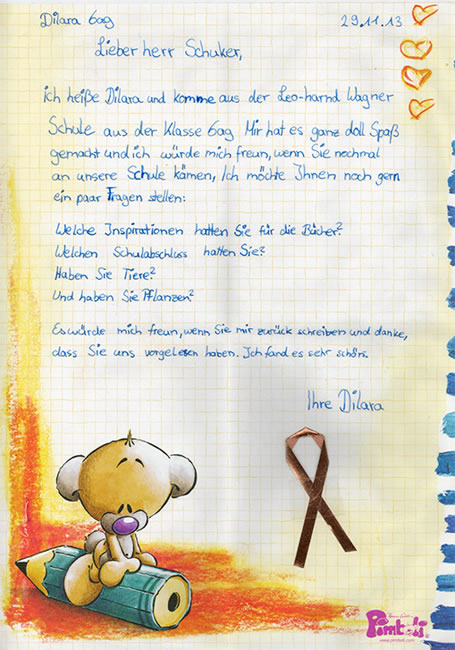 Dilara 6ag 29.11.13
Lieber herr Schuker,
ich heiße Dilara und komme aus der Leo-harnd Wagner
Schule aus der Klasse 6ag. Mir hat es ganz doll Spaß
gemacht und ich würde mich freun, wenn Sie nochmal
an unsere Schule kämen, Ich möchte Ihnen noch gern
ein paar Fragen stellen:
Welche Inspirationen hatten Sie für die Bücher?
Welchen Schulabschluss hatten Sie?
Haben Sie Tiere?
Und haben Sie Pflanzen?
Es würde mich freun, wenn Sie mir zurück schreiben und danke,
dass Sie uns vorgelesen haben. Ich fand es sehr schön.
Ihre Dilara
Pimboli
www.pimboli.com